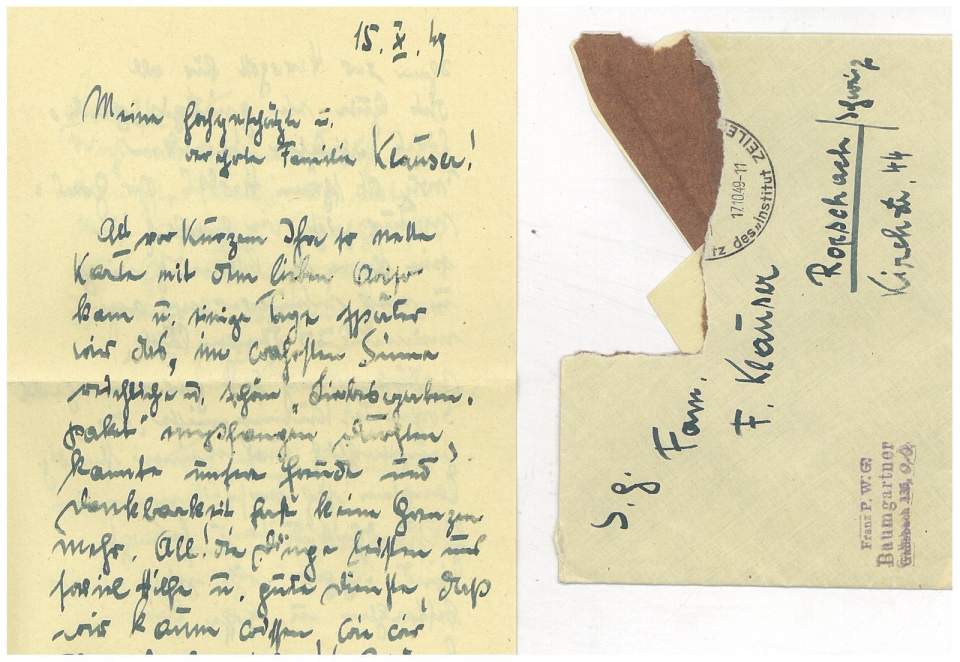 15. X. 49
Meine hochgeschätzte u.
verehrte Familie Klauser!
Als vor Kurzem Ihre so nette
Karte mit dem lieben Aviso
kam u. einige Tage später
wir das, im wahrsten Sinne
reichliche u. schöne "Liebesgaben-
paket" empfangen durften,
kannte unsere Freude und
Dankbarkeit fast keine Grenzen
mehr. All! die Dinge leisten uns
soviel Hilfe u. gute Dienste, daß
wir kaum wissen, wie wir
ZEILE
17.10.49-11
des »Institut
S. g.
Fam.
F. Klauser
Rorschach/Schweiz
Kirchstr. 44
Franz P. W. G.
Baumgartner